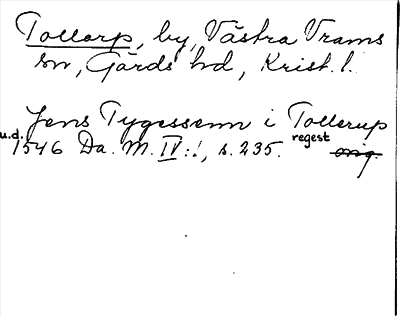 Tollarp, by, Västra Vrams
sn, Gärds hd, Krist. l.
Jens Tygessenn i Tollerup
u.d. 1546 Da. M. IV:1, s. 235. regest orig.